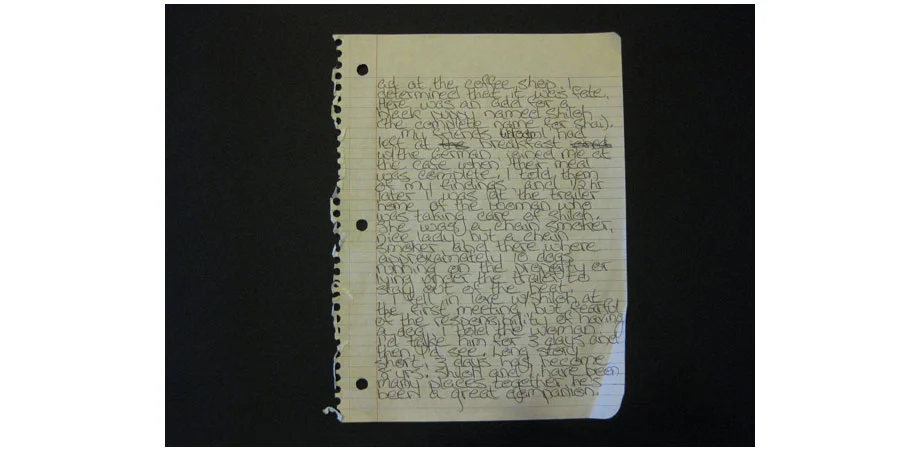 ad at the coffee shop. I
determined that it was fate.
Here was an add for a
black puppy named Shiloh
(the complete name for Shai).
my friends whom I had
left at the breakfast
w/the German, joined me at
the cafe when their meal
was complete. I told them
of my findings and 1/2 hr
later I was at the trailer
home of the woman who
was taking care of Shiloh.
She was a chain smoker,
nice lady but a chain
smoker and there where
approximately 10 dogs
running on the property or
lying under the trailer to
stay out of the heat.
I fell in love w/Shiloh at
the first meeting but fearful
of the responsibility of having
a dog. I told the woman
I'd take him for 3 days and
then I'd see. Long story
short, 3 days has become
yrs. Shiloh and I have been
many places together he's
been a great companion.